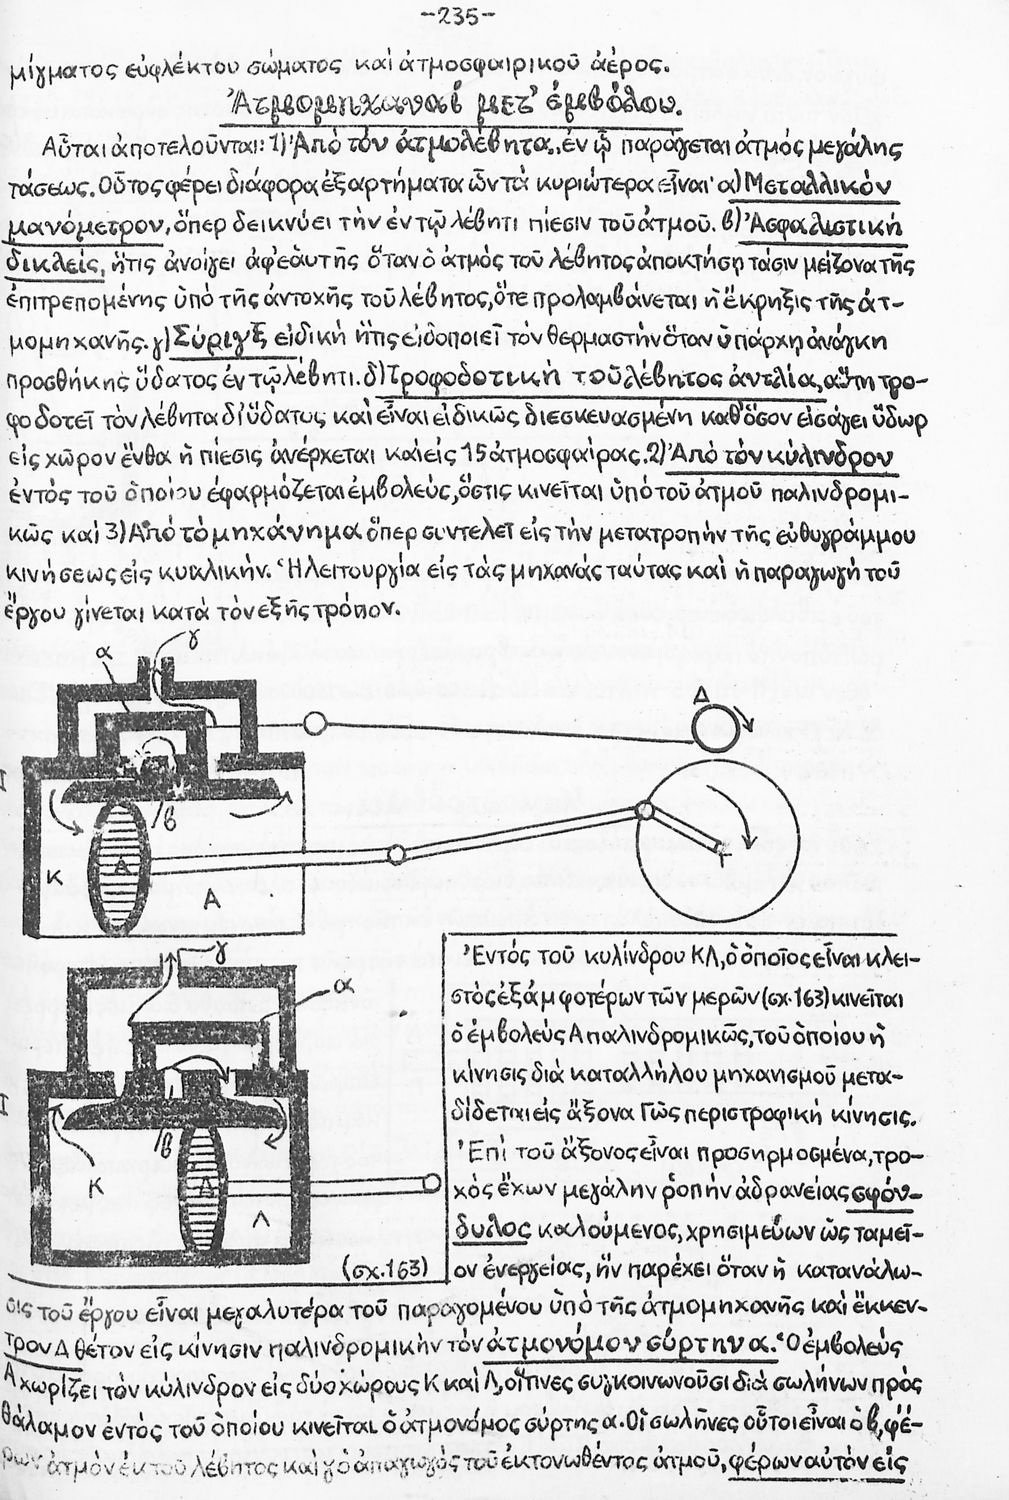 -235-
μίγματος εὐφλέκτου σώματος καὶ ἀτμοσφαιρικοῦ ἀέρος.
Ἀτμομηχαναὶ μετ' ἐμβόλου.
Αὗται ἀποτελοῦνται: 1) Ἀπὸ τὸν ἀτμολέβητα, ἐν ᾧ παράγεται ἀτμὸς μεγάλης
τάσεως. Οὗτος φέρει διάφορα ἐξαρτήματα ὧν τὰ κυριώτερα εἶναι· α) Μεταλλικὸν
μανόμετρον, ὅπερ δεικνύει τὴν ἐν τῷ λέβητι πίεσιν τοῦ ἀτμοῦ. β) Ἀσφαλιστικὴ
δικλεὶς, ἥτις ἀνοίγει ἀφ' ἑαυτῆς ὅταν ὁ ἀτμὸς τοῦ λέβητος ἀποκτήσῃ τάσιν μείζονα τῆς
ἐπιτρεπομένης ὑπὸ τῆς ἀντοχῆς τοῦ λέβητος, ὅτε προλαμβάνεται ἡ ἔκρηξις τῆς ἀτ-
μομηχανῆς. γ) Σύριγξ εἰδικὴ ἥτις εἰδοποιεῖ τὸν θερμαστὴν ὅταν ὑπάρχῃ ἀνάγκη
προσθήκης ὕδατος ἐν τῷ λέβητι. δ) τροφοδοτικὴ τοῦ λέβητος ἀντλία, αὕτη τρο-
φοδοτεῖ τὸν λέβητα δι' ὕδατος καὶ εἶναι εἰδικῶς διεσκευασμένη καθ' ὅσον εἰσάγει ὕδωρ
εἰς χῶρον ἔνθα ἡ πίεσις ἀνέρχεται καὶ εἰς 15 ἀτμοσφαίρας. 2) Ἀπὸ τὸν κύλινδρον
ἐντὸς τοῦ ὁποίου ἐφαρμόζεται ἐμβολεὺς, ὅστις κινεῖται ὑπὸ τοῦ ἀτμοῦ παλινδρομι-
κῶς καὶ 3) Ἀπὸ τὸ μηχάνημα ὅπερ συντελεῖ εἰς τὴν μετατροπὴν τῆς εὐθυγράμμου
κινήσεως εἰς κυκλικήν. Ἡ λειτουργία εἰς τὰς μηχανάς ταύτας καὶ ἡ παραγωγὴ τοῦ
ἔργου γίνεται κατὰ τὸν ἑξῆς τρόπον.
γ
α
Δ
I
β
Γ
Κ
Α
Α
γ
α
I
β
Κ
Α
Λ
(σχ. 163)
Ἐντὸς τοῦ κυλίνδρου ΚΛ, ὁ ὁποῖος εἶναι κλει-
στὸς ἐξ ἀμφοτέρων τῶν μερῶν (σχ. 163) κινεῖται
ὁ ἐμβολεὺς Α παλινδρομικῶς, τοῦ ὁποίου ἡ
κίνησις διὰ καταλλήλου μηχανισμοῦ μετα-
δίδεται εἰς ἄξονα Γ ὡς περιστροφικὴ κίνησις.
Ἐπὶ τοῦ ἄξονος εἶναι προσηρμοσμένα, τρο-
χὸς ἔχων μεγάλην ῥοπὴν ἀδρανείας σφόν-
δυλος καλούμενος, χρησιμεύων ὡς ταμεῖ-
ον ἐνεργείας, ἣν παρέχει ὅταν ἡ κατανάλω-
σις τοῦ ἔργου εἶναι μεγαλυτέρα τοῦ παραγομένου ὑπὸ τῆς ἀτμομηχανῆς καὶ ἔκκεν-
τρον Δ θέτον εἰς κίνησιν παλινδρομικὴν τὸν ἀτμονόμον σύρτην α. Ὁ ἐμβολεὺς
Α χωρίζει τὸν κύλινδρον εἰς δύο χώρους Κ καὶ Λ, οἵτινες συγκοινωνοῦσι διὰ σωλήνων πρὸς
θάλαμον ἐντὸς τοῦ ὁποίου κινεῖται ὁ ἀτμονόμος σύρτης α. Οἱ σωλῆνες οὗτοι εἶναι ὁ β, φέ-
ρων ἀτμὸν ἐκ τοῦ λέβητος καὶ γ ὁ ἀπαγωγὸς τοῦ ἐκτονωθέντος ἀτμοῦ, φέρων αὐτὸν εἰς